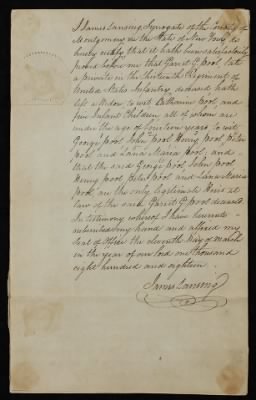 I James Lansing Surrogate of the County of
Montgomery in the State of New York do
hereby certify that it hath been satisfactorily
proved before me that Garrit G Pool, late
a private in the Thirteenth Regiment of
United States Infantry, deceased hath
left a Widow to wit Catharine Pool, and
five Infant Children, all of whom are
under the age of fourteen years to wit
George Pool John Pool Henry Pool Peter
Pool and Lana Maria Pool; and
that the said George Pool John Pool
Henry Pool Peter Pool and Lana Maria
Pool, are the only legitimate Heirs at
law of the said Garrit G Pool deceased.
In testimony whereof I have hereunto
subscribed my hand and affixed my
Seal of Office the eleventh day of March
in the year of our Lord one thousand
eight hundred and eighteen.
James Lansing